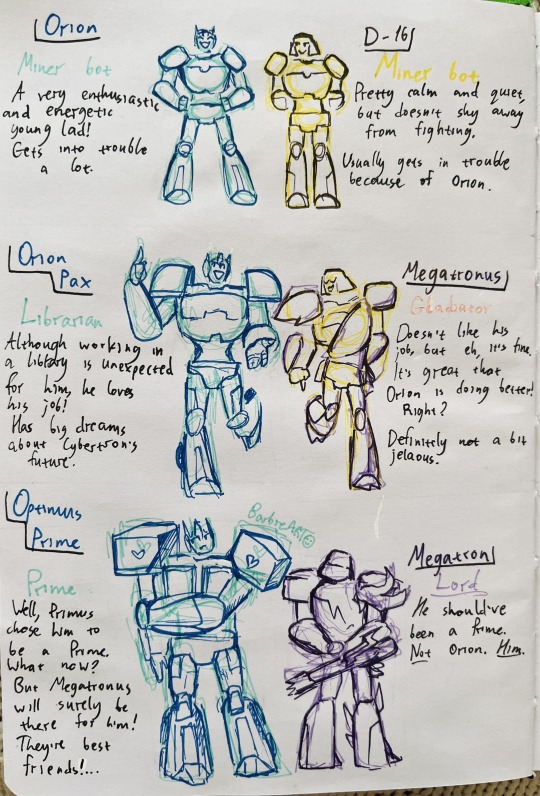 Orion
Miner bot
A very enthusiastic
and energetic
young lad!
Gets into trouble
a lot.
D-16
Miner bot
Pretty calm and quiet,
but doesn't shy away
from fighting.
Usually gets in trouble
because of Orion.
Orion
Pax
Librarian
Although working in
a library is unexpected
for him, he loves
his job!
Has big dreams
about Cybertron's
future.
Megatronus
Gladiator
Doesn't like his
job, but eh, it's fine.
It's great that
Orion is doing better!
Right?
Definitely not a bit
jelaous.
Optimus
Prime
Prime
Well, Primus
chose him to
be a Prime.
What now?
But Megatronus
will surely be
there for him!
They're best
friends!...
BarbieART
Megatron
Lord
He should've
been a Prime.
Not Orion. Him.